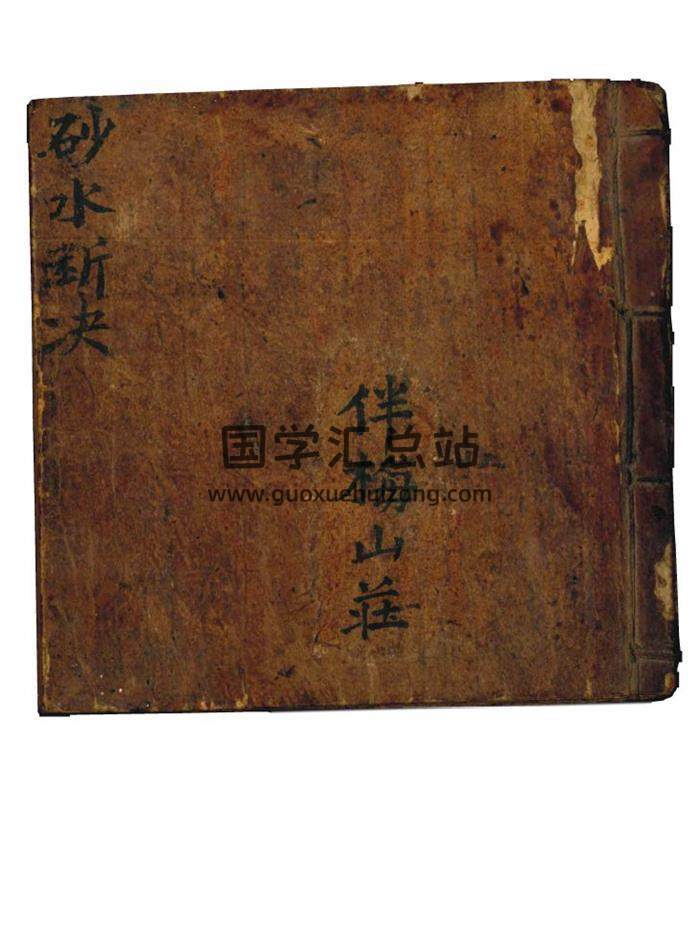 砂水断决
伴梅山莊
国学汇总站
www.guoxuehuizong.com